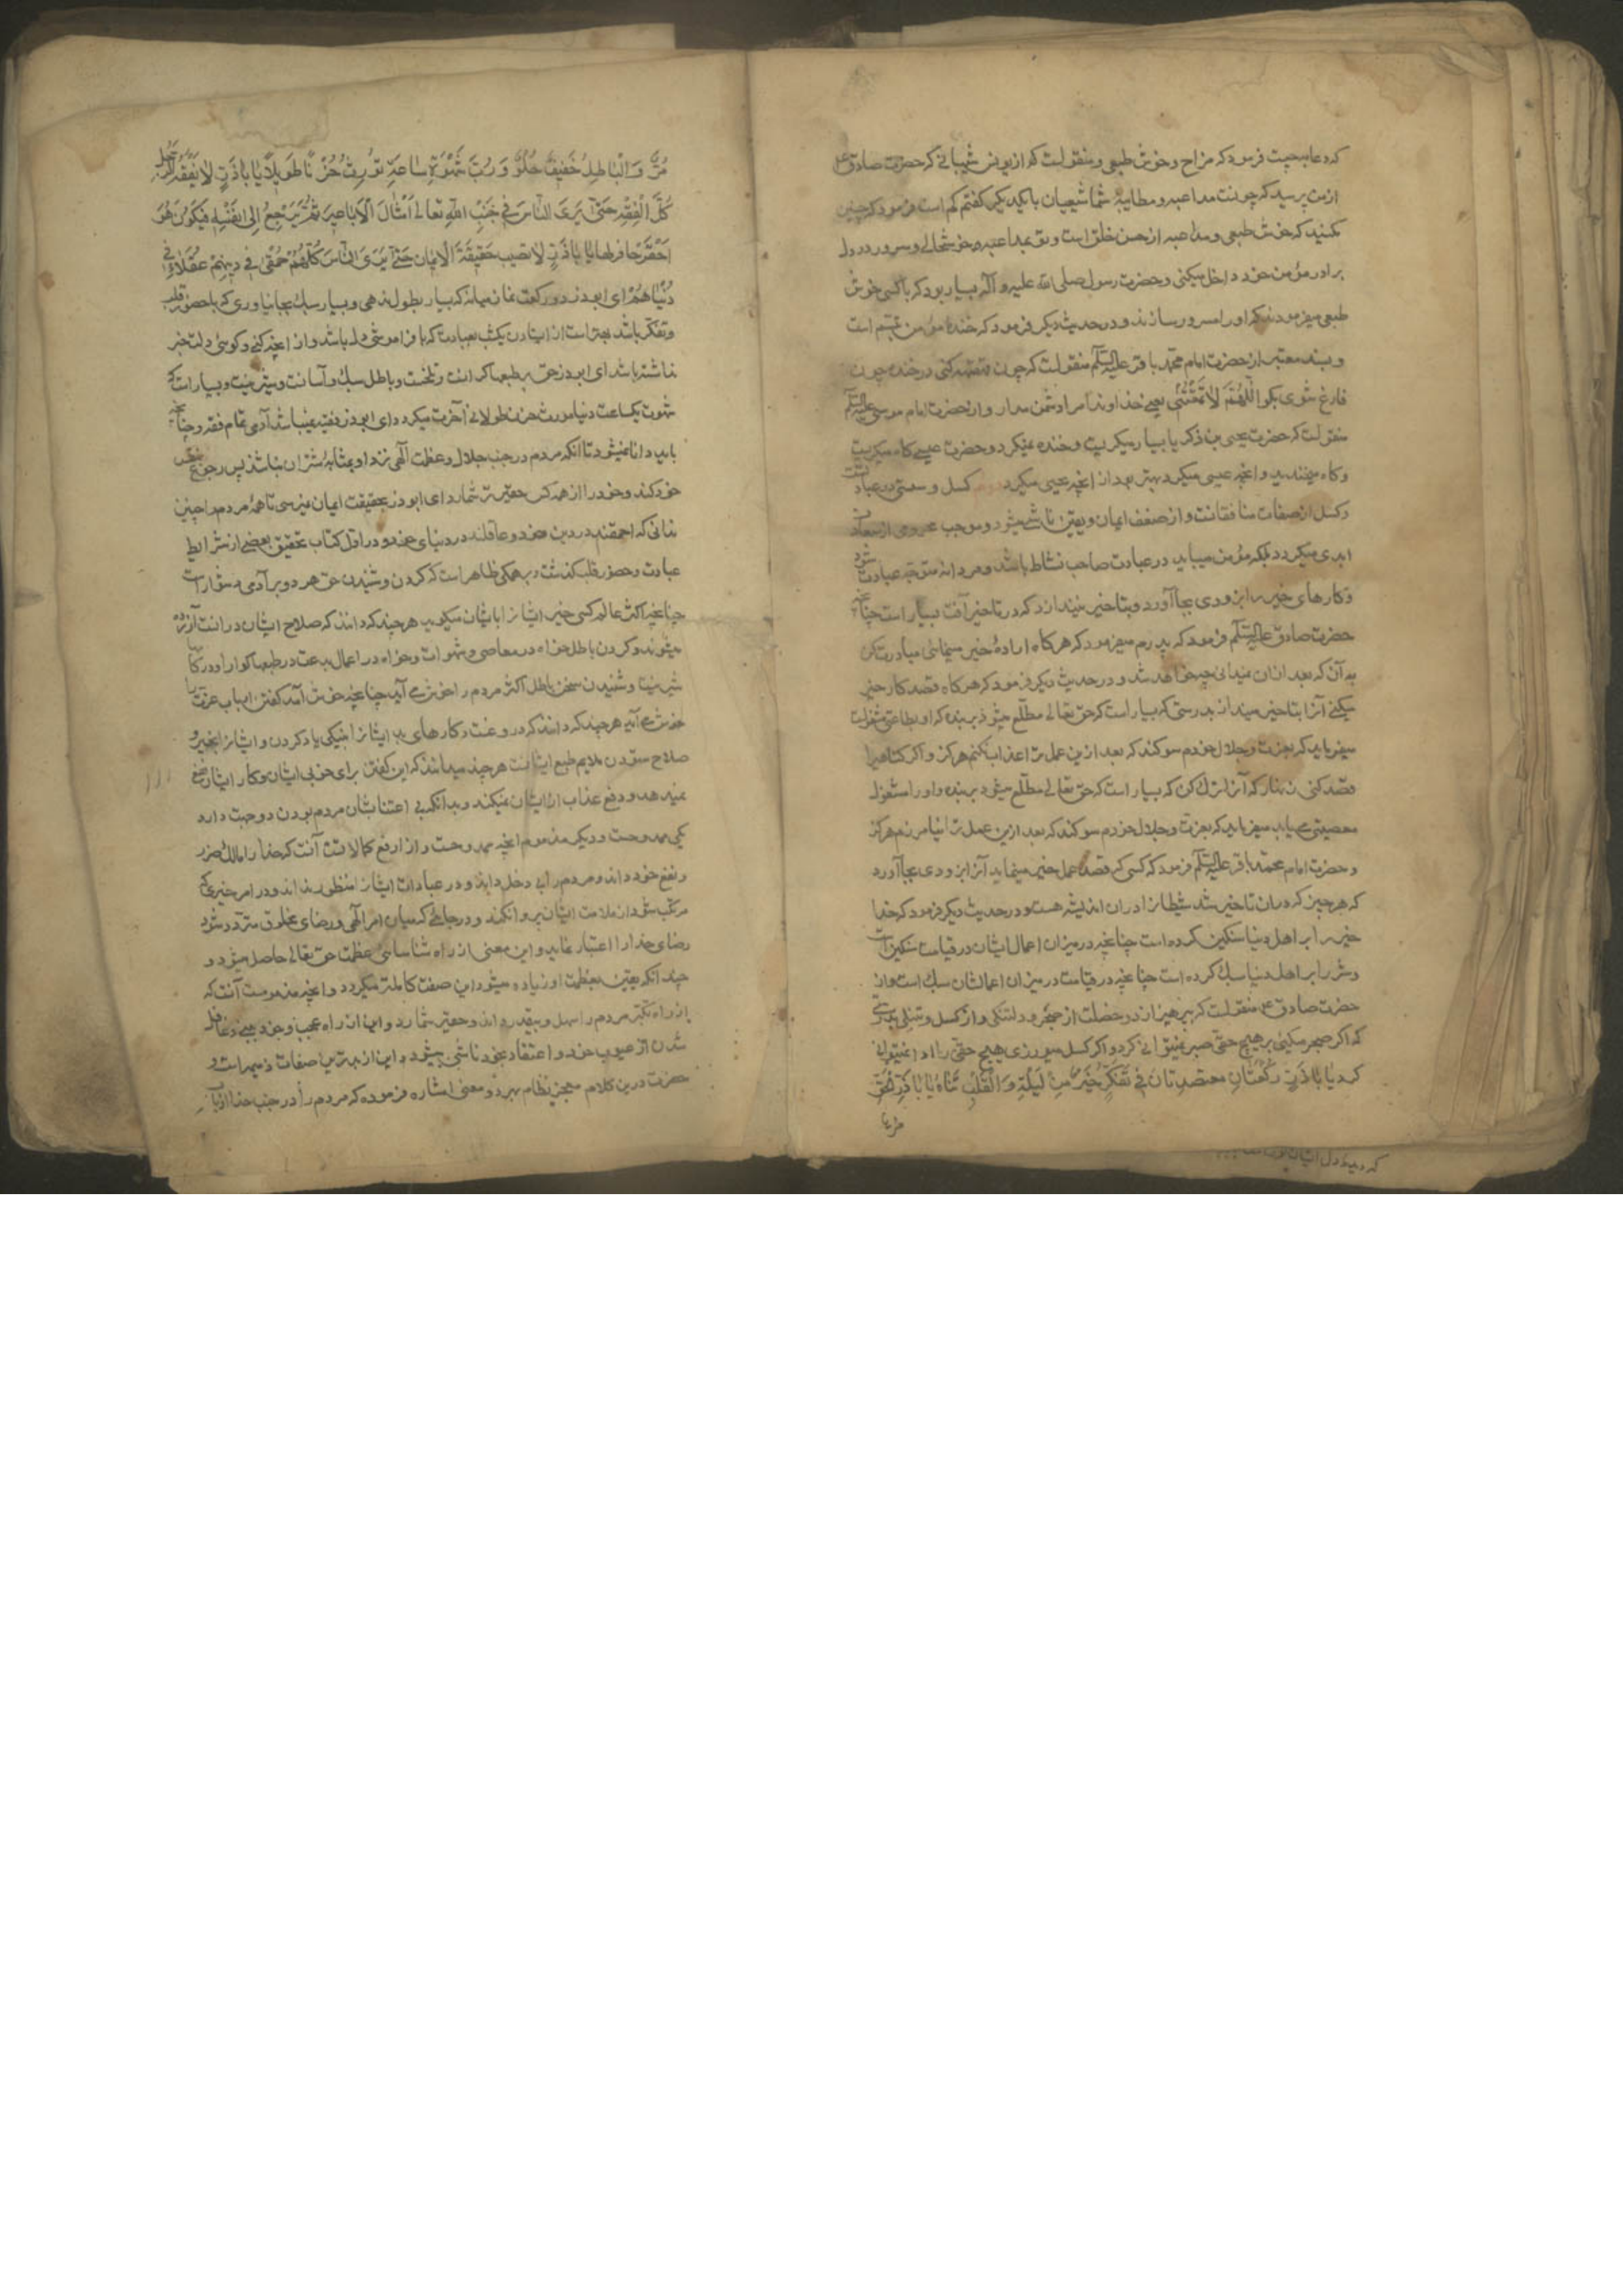 که دعابه چیست فرمود که مزاح و خوش طبعی و منقولست که از یونس شیبانی که حضرت صادق ع
از من پرسید که چونست مداعبه و مطایبهٔ شما شیعیان با یکدیگر گفتم کم است فرمود که چنین
مکنید که خوش طبعی و مداعبه از حسن خلق است و تو بمداعبه خوشحالی و سرور در دل
برادر مؤمن خود داخل میکنی و حضرت رسول صلی الله علیه و آله بسیار بود که با کسی خوش
طبعی میفرمودند که او را مسرور سازند و در حدیث دیگر فرمود که خندهٔ مؤمن تبسم است
و بسند معتبر از حضرت امام محمد باقر علیه السلام منقولست که چون قهقهه کنی در خنده چون
فارغ شوی بگو اَللّٰهُمَّ لَا تَمْقُتْنِی یعنی خداوندا مرا دشمن مدار و از حضرت امام موسی علیه السلام
منقولست که حضرت یحیی بن زکریا بسیار میگریست و خنده نمیکرد و حضرت عیسی گاه میگریست
و گاه میخندید و آنچه عیسی میکرد بهتر بود از آنچه یحیی میکرد کسل و سستی در عبادت
و کسل از صفات منافقانست و از ضعف ایمان و یقین ناشی میشود و موجب محرومی از سعادت
ابدی میگردد بلکه مؤمن میباید در عبادت صاحب نشاط باشد و مردانه متوجه عبادت شود
و کارهای خیر را بزودی بجا آورد و بتاخیر نیندازد که در تاخیر آفت بسیار است چنانچه
حضرت صادق علیه السلام فرمود که پدرم میفرمود که هرگاه ارادهٔ خیر مینمائی مبادرت کن
به آن که بعد از ان نمیدانی چه خواهد شد و در حدیث دیگر فرمود که هرگاه قصد کار خیر
میکنی آنرا بتاخیر مینداز بدرستی که بسیار است که حق تعالی مطلع میشود بر بنده که او بطاعتی مشغولست
میفرماید که بعزت و جلال خودم سوگند که بعد ازین عمل ترا عذاب نکنم هرگز و اگر گناهی را
قصد کنی زنهار که آنرا ترک کن که بسیار است که حق تعالی مطلع میشود بر بنده و او را مشغول
معصیتی می یابد میفرماید که بعزت و جلال خودم سوگند که بعد ازین عمل ترا نیامرزم هرگز
و حضرت امام محمد باقر علیه السلام فرمود که کسی که قصد عمل خیر مینماید آنرا بزودی بجا آورد
که هر چیز که در ان تاخیر شد شیطانرا در ان اندیشه هست و در حدیث دیگر فرمود که خدا
خیر را بر اهل دنیا سنگین کرده است چنانچه در میزان اعمال ایشان در قیامت سنگین است
و شر را بر اهل دنیا سبک کرده است چنانچه در قیامت در میزان اعمالشان سبک است و از
حضرت صادق ع منقولست که بپرهیز از دو خصلت از ضجر و دلتنگی و از کسل و تنبلی بدرستی
که اگر ضجر میکنی بر هیچ حقی صبر نمیتوانی کرد و اگر کسل میورزی هیچ حقی را ادا نمیتوانی
کرد یَا بَاذَرٍّ رَکْعَتَانِ مقتصدتان فِی تَفَکُّرٍ خَیْرٌ مِنْ قِیَامِ لَیْلَةٍ وَ الْقَلْبُ سَاهٍ یَا بَاذَرٍّ الْحَقُّ
مُرٌّ وَ الْبَاطِلُ خَفِیفٌ حُلْوٌ وَ رُبَّ شَهْوَةِ سَاعَةٍ تُورِثُ حُزْنًا طَوِیلًا یَا بَاذَرٍّ لَا یَفْقَهُ الرَّجُلُ
کُلَّ الْفِقْهِ حَتَّی یَرَی النَّاسَ فِی جَنْبِ اللهِ تَعَالَی أَمْثَالَ الْأَبَاعِرِ ثُمَّ یَرْجِعُ إِلَی نَفْسِهِ فَیَکُونَ هُوَ
أَحْقَرَ حَاقِرٍ لها یَا بَاذَرٍّ لَا تصیب حَقِیقَةَ الْإِیمَانِ حَتَّی تَرَی النَّاسَ کُلَّهُمْ حَمْقَی فِی دِینِهِمْ عُقَلَاءَ فِی
دُنْیَاهُمْ ای ابوذر دو رکعت نماز میانه که بسیار بطول ندهی و بسیار سبک بجا نیاوری که با حضور قلب
و تفکر باشد بهتر است از ایستادن یکشب بعبادت که با فراموشی دل باشد و از آنچه کنی و گوئی دلت خبر
نداشته باشد ای ابوذر حق بر طبعها گرانست و تلخست و باطل سبک و آسانست و شیرینست و بسیار است که
شهوت یکساعت دنیا مورث حزن طولانی آخرت میگردد ای ابوذر فقیه نمیباشد آدمی تمام فقه و چنانچه
باید دانا نمیشود تا آنکه مردم در جنب جلال و عظمت الهی نزد او بمثابهٔ شتران نباشند پس رجوع بنفس
خود کند و خود را از همه کس حقیرتر شمارد ای ابوذر بحقیقت ایمان نمیرسی تا همهٔ مردم را چنین
ندانی که احمقند در دین خود و عاقلند در دنیای خود و در اول کتاب تحقیق بعضی از شرایط
عبادت و حضور قلب گذشت و بر همگی ظاهر است که کردن و شنیدن حق هر دو بر آدمی دشوار است
چنانچه اکثر عالم کسی خیر ایشانرا با ایشان میگوید هر چند که دانند که صلاح ایشان در انست آزرده
میشوند و کردن باطل خواه در معاصی و شهوات و خواه در اعمال بدعت در طبعها گوارا و در کامها
شیرینست و شنیدن سخن باطل اکثر مردم را خوش می آید چنانچه خوش آمد گفتن ارباب عزت را
خوش می آید هر چند که دانند که دروغست و کارهای بد ایشانرا بنیکی یاد کردن و ایشانرا بخیر و
صلاح ستودن ملایم طبع ایشانست هر چند میدانند که این گفتن برای خوبی ایشان و کار ایشان نفع
نمیدهد و دفع عذاب از ایشان نمیکند و بدانکه بی اعتنا بشان مردم بودن دو جهت دارد
یکی ممدوحست و دیگر مذموم آنچه ممدوحست و از ارفع کمالاتست آنست که خدا را مالک ضرر
و نفع خود داند و مردم را بی دخل داند و در عبادات ایشانرا منظور نداند و در امر خیری که
مرتکب شود از ملامت ایشان پروا نکند و در جائی که میان امر الهی و رضای مخلوق متردد شود
رضای خدا را اعتبار نماید و این معنی از راه شناسائی عظمت حق تعالی حاصل میشود و
چندانکه یقین بعظمت او زیاده میشود این صفت کاملتر میگردد و آنچه مذمومست آنست که
از راه تکبر مردم را سهل و بیقدر داند و حقیر شمارد و این از راه عجب و خودبینی و غافل
شدن از عیوب خود و اعتقاد بخود ناشی میشود و این از بدترین صفات ذمیمه است و
حضرت درین کلام معجز نظام بهر دو معنی اشاره فرموده که مردم را در جنب خدا